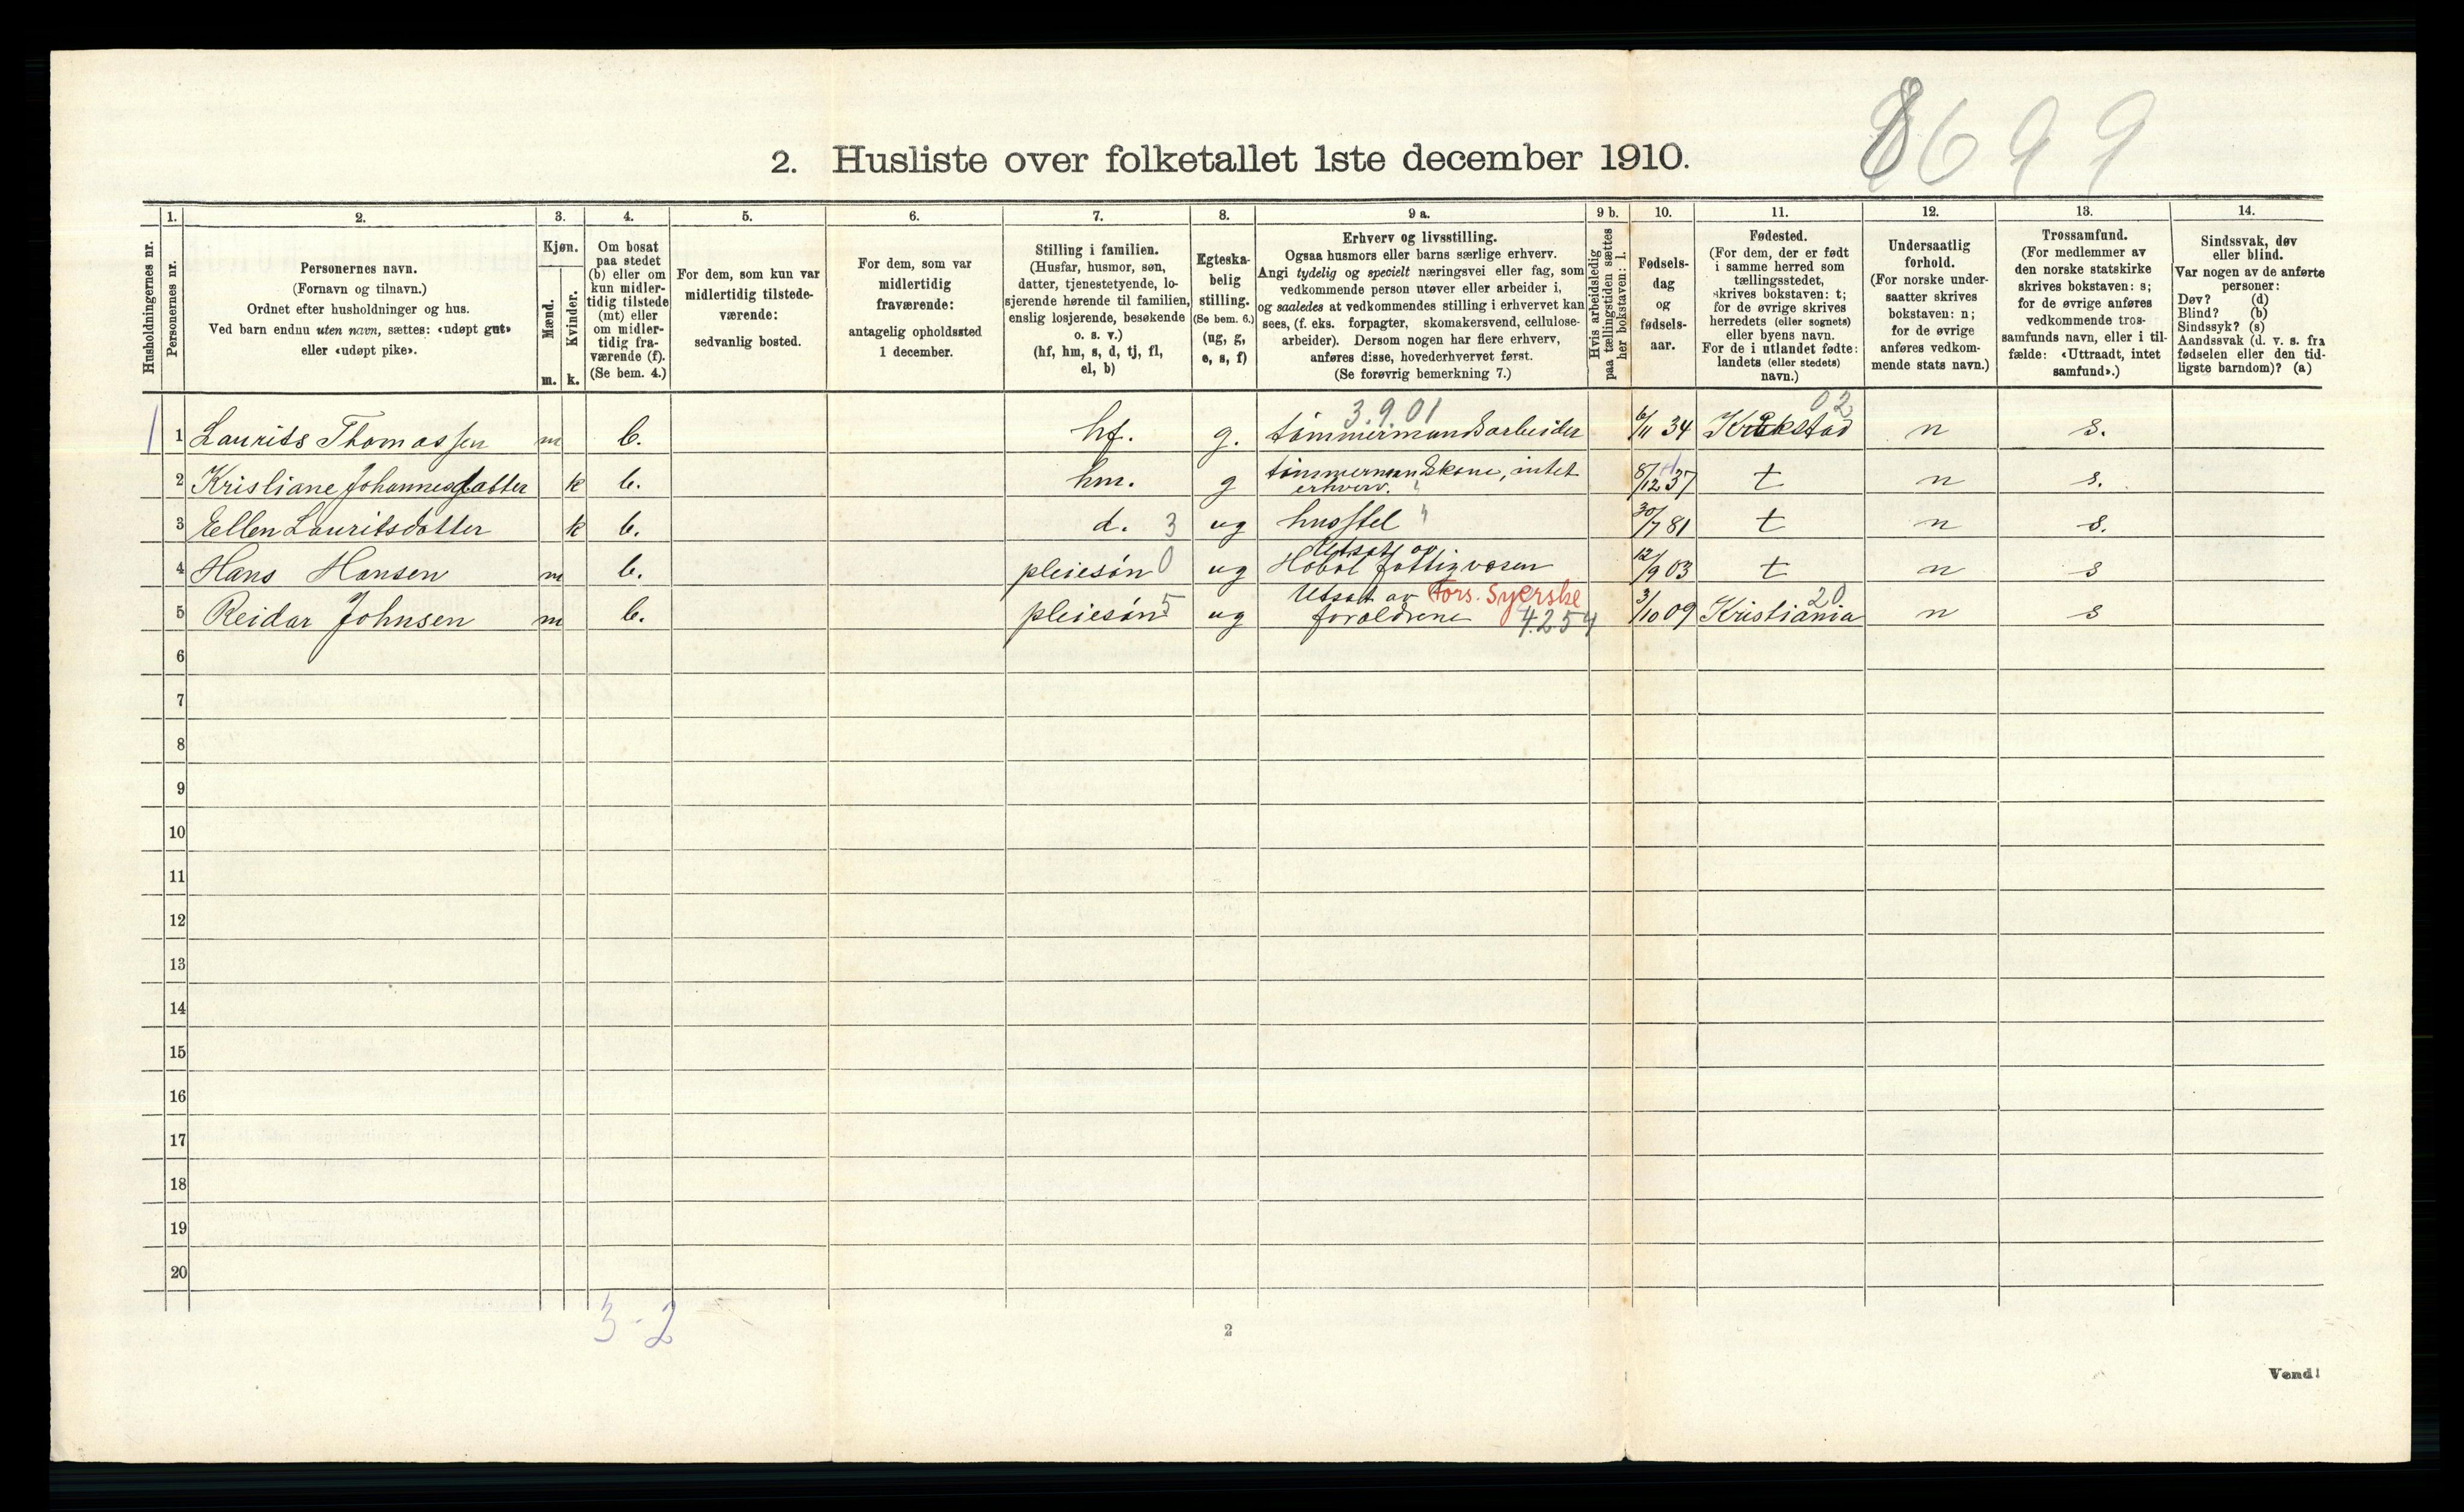 8699
2. Husliste over folketallet 1ste december 1910.
Husholdningernes nr.
1.
Personernes nr.
2.
Personernes navn.
(Fornavn og tilnavn.)
Ordnet efter husholdninger og hus.
Ved barn endnu uten navn, sættes: «udøpt gut»
eller «udøpt pike».
3.
Kjøn.
Mænd.
Kvinder.
m. k.
4.
Om bosat
paa stedet
(b) eller om
kun midler-
tidig tilstede
(mt) eller
om midler-
tidig fra-
værende (f).
(Se bem. 4.)
5.
For dem, som kun var
midlertidig tilstede-
værende:
sedvanlig bosted.
6.
For dem, som var
midlertidig
fraværende:
antagelig opholdssted
1 december.
7.
Stilling i familien.
(Husfar, husmor, søn,
datter, tjenestetyende, lo-
sjerende hørende til familien,
enslig losjerende, besøkende
o. s. v.)
(hf, hm, s, d, tj, fl,
el, b)
8.
Egteska-
belig
stilling.
(Se bem. 6.)
(ug, g,
e, s, f)
9 a.
Erhverv og livsstilling.
Ogsaa husmors eller barns særlige erhverv.
Angi tydelig og specielt næringsvei eller fag, som
vedkommende person utøver eller arbeider i,
og saaledes at vedkommendes stilling i erhvervet kan
sees, (f. eks. forpagter, skomakersvend, cellulose-
arbeider). Dersom nogen har flere erhverv,
anføres disse, hovederhvervet først.
(Se forøvrig bemerkning 7.)
9 b.
Hvis arbeidsledig
paa tællingstiden sættes
her bokstaven: l.
10.
Fødsels-
dag
og
fødsels-
aar.
11.
Fødested.
(For dem, der er født
i samme herred som
tællingsstedet,
skrives bokstaven: t;
for de øvrige skrives
herredets (eller sognets)
eller byens navn.
For de i utlandet fødte:
landets (eller stedets)
navn.)
12.
Undersaatlig
forhold.
(For norske under-
saatter skrives
bokstaven: n;
for de øvrige
anføres vedkom-
mende stats navn.)
13.
Trossamfund.
(For medlemmer av
den norske statskirke
skrives bokstaven: s;
for de øvrige anføres
vedkommende tros-
samfunds navn, eller i til-
fælde: «Uttraadt, intet
samfund».)
14.
Sindssvak, døv
eller blind.
Var nogen av de anførte
personer:
Døv? (d)
Blind? (b)
Sindssyk? (s)
Aandssvak (d. v. s. fra
fødselen eller den tid-
ligste barndom)? (a)
3.9.01 02
1 1 Laurits Thomassen m b. hf. g. tømmermandsarbeider 6/11 34 Krækstad n s.
2 Kristiane Johannesdatter k b. hm. g tømmermandskone, intet erhverv. 8/12 37 t n s.
3 Ellen Lauritsdatter k b. d. 3 ug husstel 30/7 81 t n s.
4 Hans Hansen m b. pleiesøn 0 ug Utsat av Hobøl fattigvæsen 12/9 03 t n s
5 Reidar Johnsen m b. pleiesøn 5 ug Utsat av forældrene Fors. Syerske 4.254 3/10 09 Kristiania 20 n s
6
7
8
9
10
11
12
13
14
15
16
17
18
19
20
3-2
2
Vend!